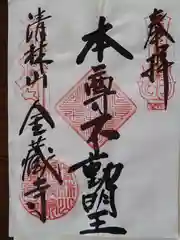 奉拝
本尊不動明王
清林山
金蔵寺